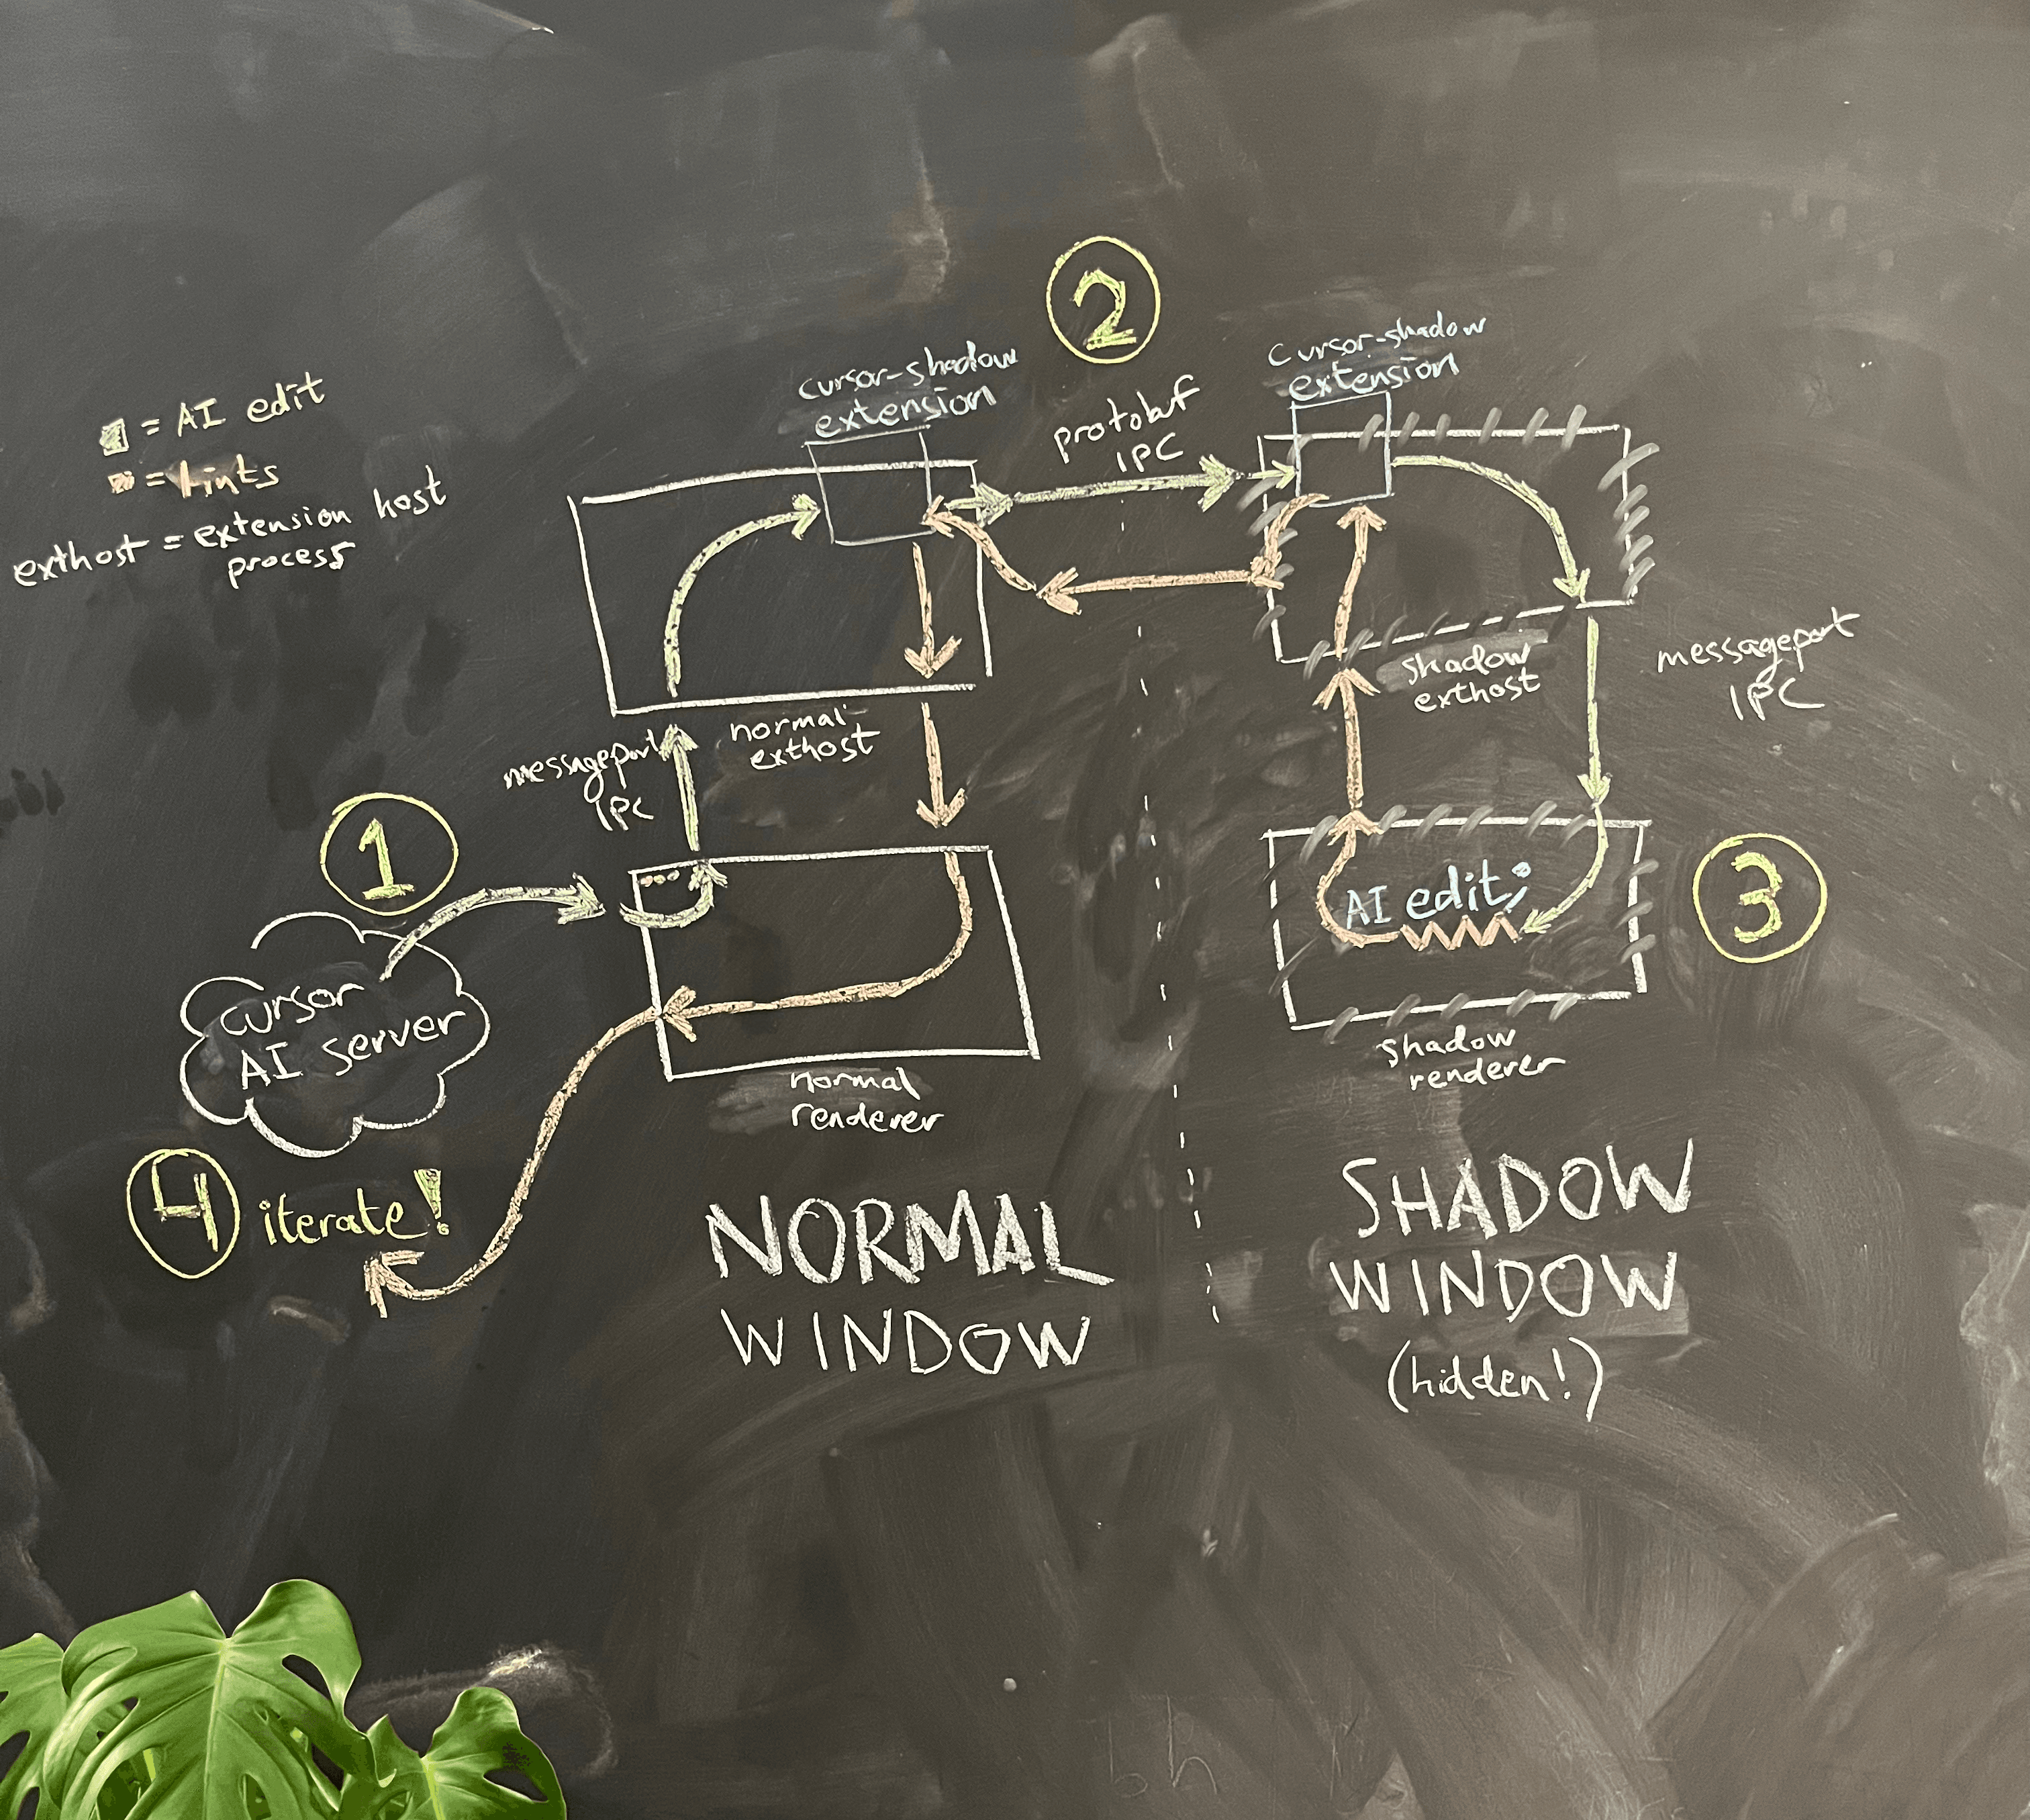 2
cursor-shadow
extension
cursor-shadow
extension
protobuf
IPC
= AI edit
= lints
exthost = extension host
process
normal
exthost
shadow
exthost
messageport
IPC
messageport
IPC
1
AI edit;
3
cursor
AI server
normal
renderer
shadow
renderer
4 iterate!
NORMAL
WINDOW
SHADOW
WINDOW
(hidden!)